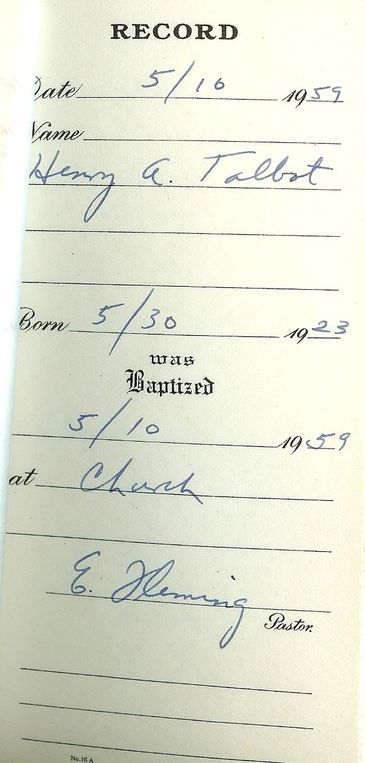 RECORD
Date 5/10 1959
Name
Henry A. Talbot
Born 5/30 1923
was
Baptized
5/10 1959
at Church
E. Fleming
Pastor.
No. 1E A